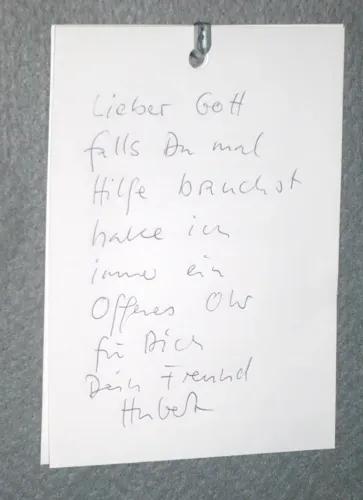 Lieber Gott
falls Du mal
Hilfe brauchst
habe ich
immer ein
Offenes Ohr
für Dich
Dein Freund
Hubert